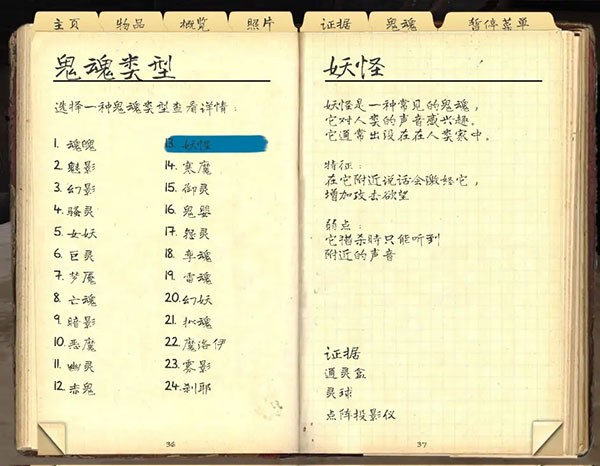 主页 物品 概览 照片 证据 鬼魂 暂停菜单
鬼魂类型
选择一种鬼魂类型查看详情：
1. 魂魄
2. 魅影
3. 幻影
4. 骚灵
5. 女妖
6. 巨灵
7. 梦魇
8. 亡魂
9. 暗影
10. 恶魔
11. 幽灵
12. 赤鬼
13. 妖怪
14. 寒魔
15. 御灵
16. 鬼婴
17. 怨灵
18. 孪魂
19. 雷魂
20. 幻妖
21. 拟魂
22. 魔洛伊
23. 雾影
24. 刹耶
36
妖怪
妖怪是一种常见的鬼魂，
它对人类的声音感兴趣。
它通常出没在在人类家中。
特征：
在它附近说话会激怒它，
增加攻击欲望
弱点：
它猎杀时只能听到
附近的声音
证据
通灵盒
灵球
点阵投影仪
37